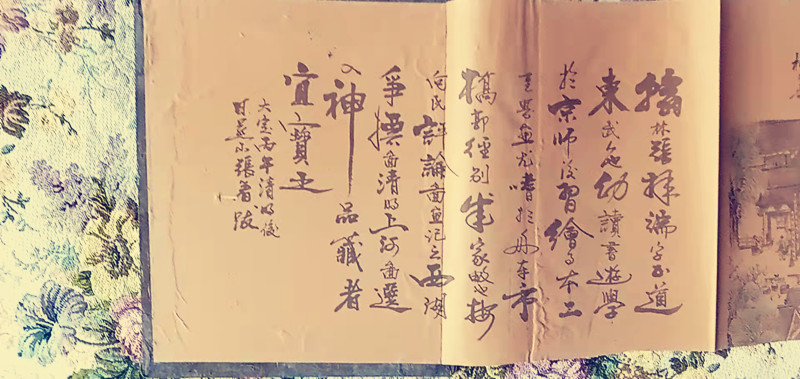 翰林張擇端字正道
東武人也幼讀書遊學
於京師後習繪事本工
其界畫尤嗜於舟車市
橋郭徑別成家數也按
向氏評論圖畫記云西湖
爭標圖清明上河圖選
入神品藏者
宜寶之
大定丙午清明後
一日燕山張著跋